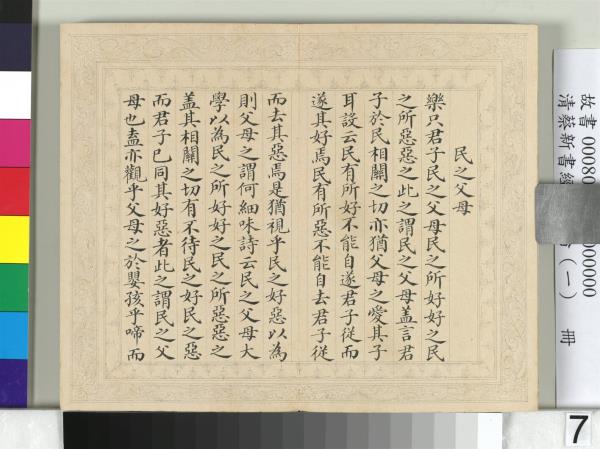 民之父母
樂只君子民之父母民之所好好之民
之所惡惡之此之謂民之父母蓋言君
子於民相關之切亦猶父母之愛其子
耳設云民有所好不能自遂君子從而
遂其好焉民有所惡不能自去君子從
而去其惡焉是猶視乎民之好惡以為
則父母之謂何細味詩云民之父母大
學以為民之所好好之民之所惡惡之
蓋其相關之切有不待民之好民之惡
而君子已同其好惡者此之謂民之父
母也盍亦觀乎父母之於嬰孩乎啼而
故書 0008
000000
清蔡新書經
(一) 冊
7